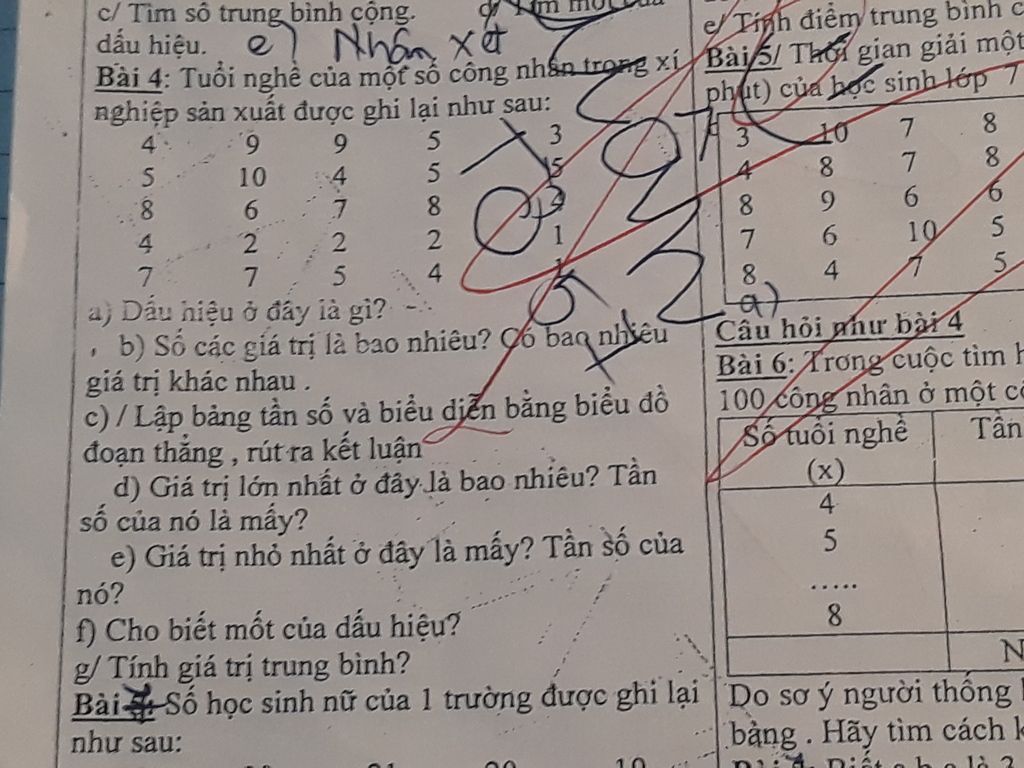 c/ Tìm số trung bình cộng.
dấu hiệu. e) Nhận xét
Bài 4: Tuổi nghề của một số công nhân trong xí
nghiệp sản xuất được ghi lại như sau:
4 9 9 5 3
5 10 4 5 5
8 6 7 8
4 2 2 2 1
7 7 5 4
a) Dấu hiệu ở đây là gì?
b) Số các giá trị là bao nhiêu? Có bao nhiêu
giá trị khác nhau .
c) / Lập bảng tần số và biểu diễn bằng biểu đồ
đoạn thẳng , rút ra kết luận
d) Giá trị lớn nhất ở đây là bao nhiêu? Tần
số của nó là mấy?
e) Giá trị nhỏ nhất ở đây là mấy? Tần số của
nó?
f) Cho biết mốt của dấu hiệu?
g/ Tính giá trị trung bình?
Bài Số học sinh nữ của 1 trường được ghi lại
như sau:
e/ Tính điểm trung bình
Bài 5/ Thời gian giải một
phút) của học sinh lớp 7
3 10 7 8
4 8 7 8
8 9 6 6
7 6 10 5
8 4 7 5
a)
Câu hỏi như bài 4
Bài 6: Trong cuộc tìm
100 công nhân ở một
Số tuổi nghề Tần
(x)
4
5
.....
8
N
Do sơ ý người thống
bảng . Hãy tìm cách